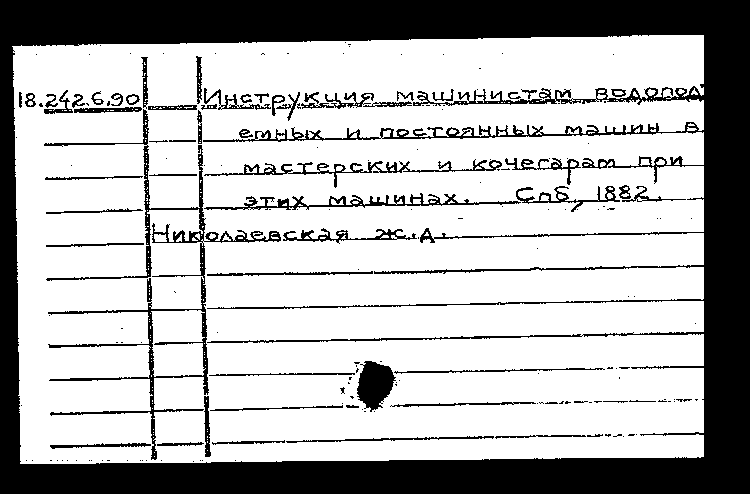 18.242.6.90 Инструкция машинистам водопод
емных и постоянных машин в
мастерских и кочегарам при
этих машинах. Спб, 1882.
Николаевская ж.д.